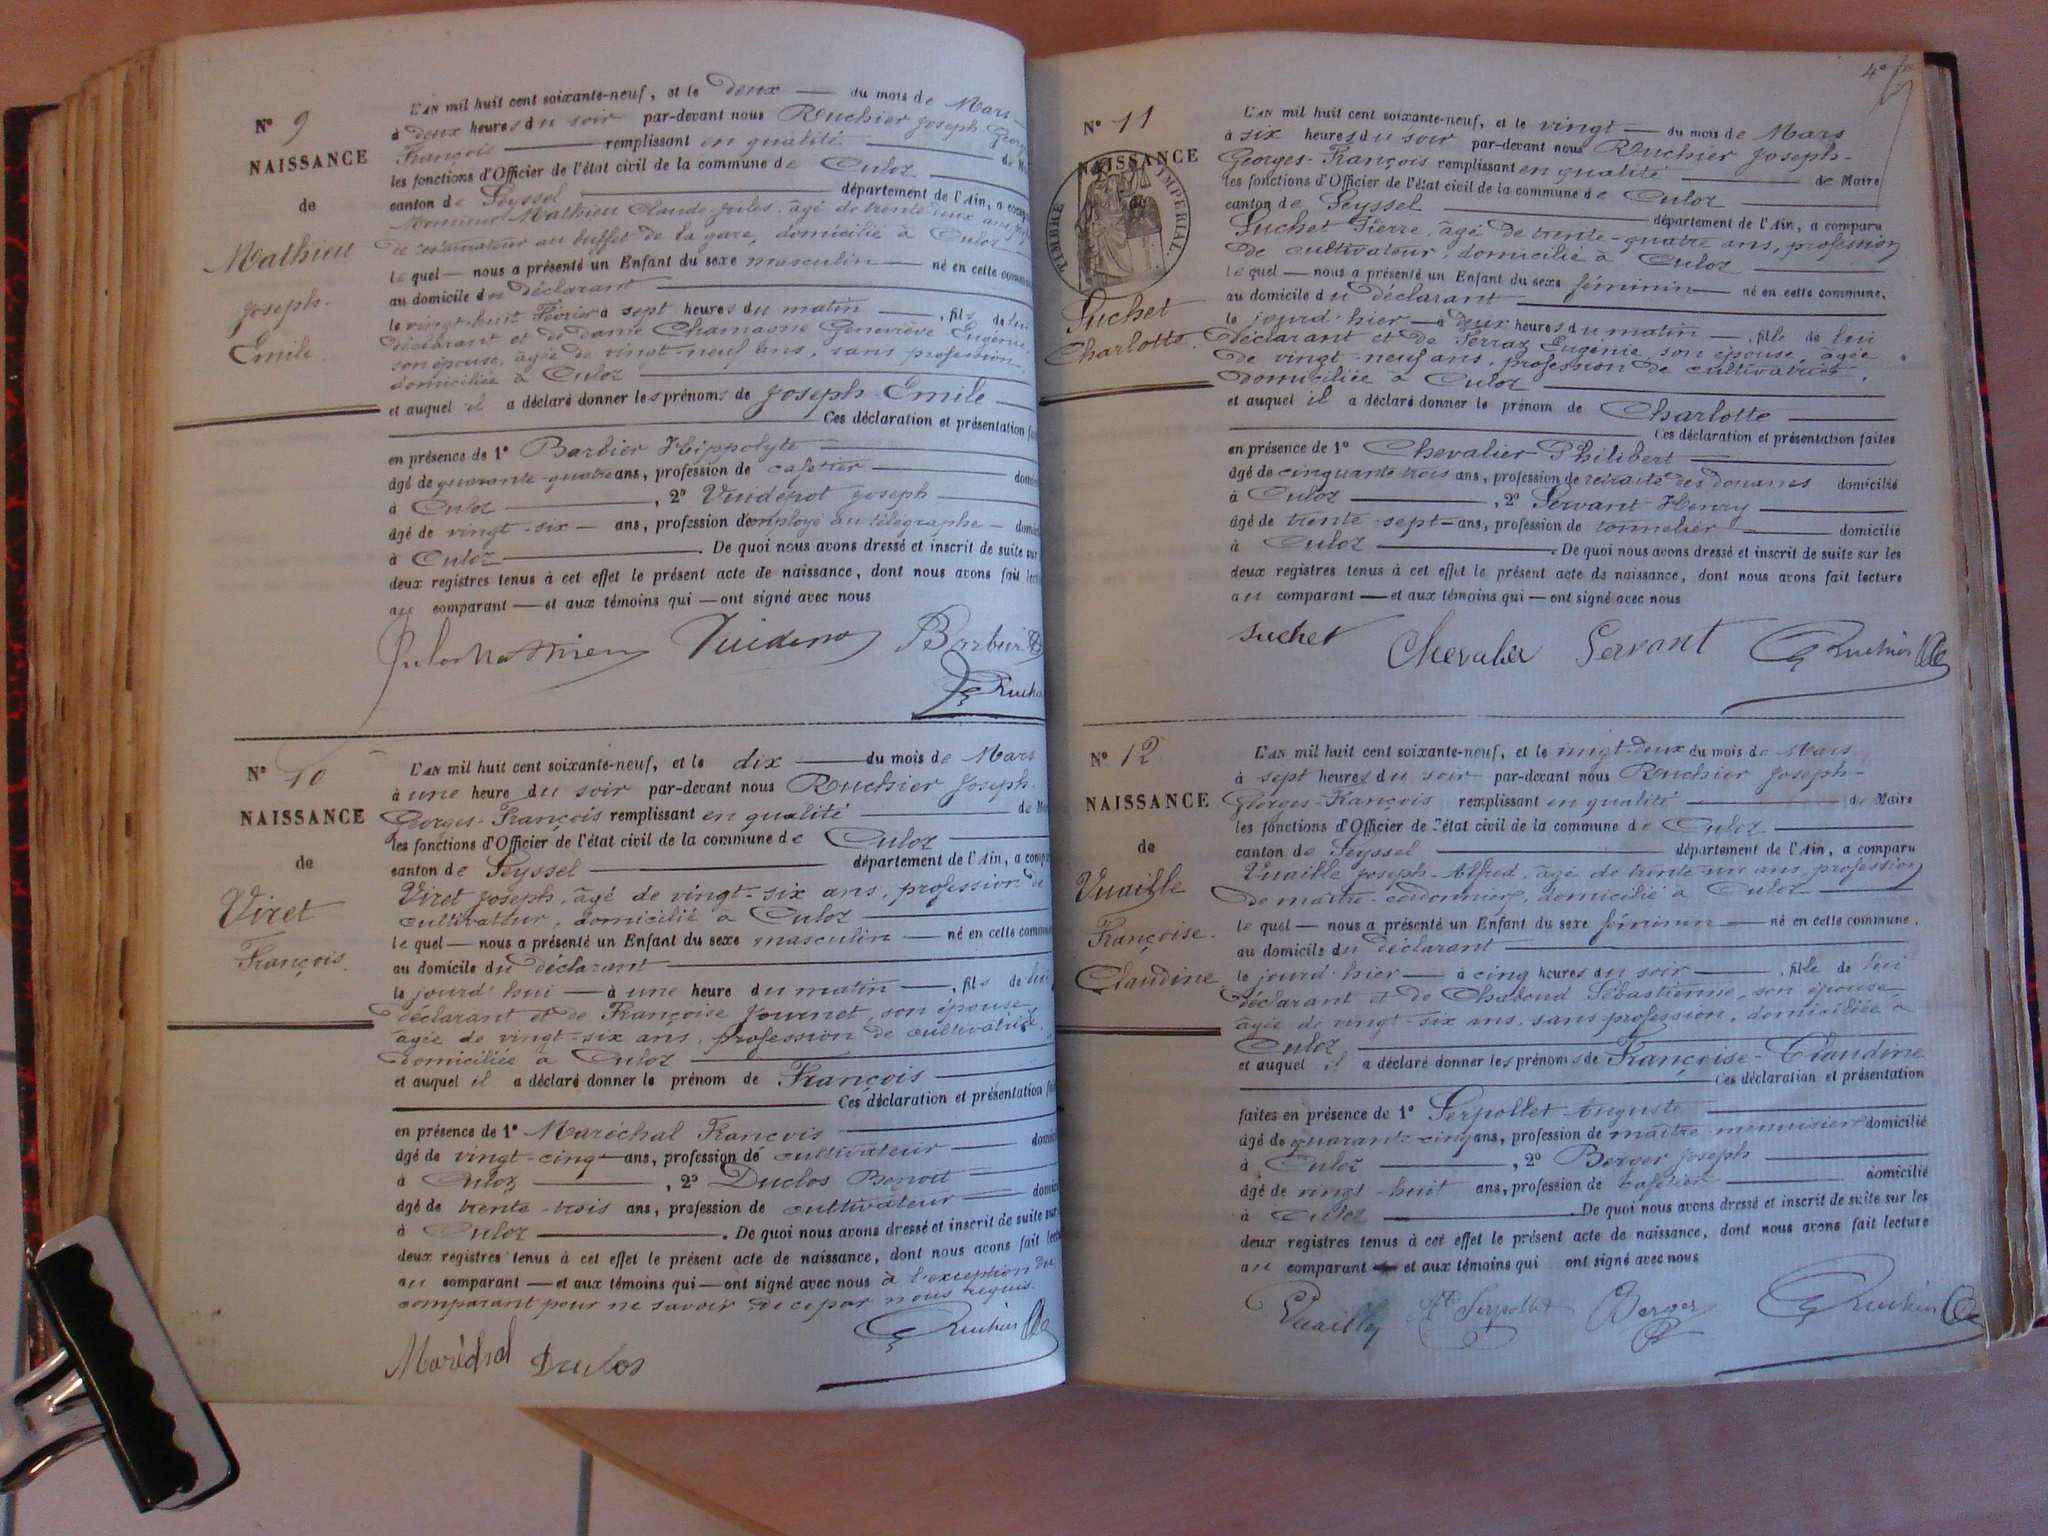 N° 9
NAISSANCE
de
Mathieu
Joseph-
Emile.
L'AN mil huit cent soixante-neuf, et le deux — du mois de Mars
à deux heures du soir par-devant nous Ruchier Joseph Georges
François — remplissant en qualité — de
les fonctions d'Officier de l'état civil de la commune de Culoz
canton de Seyssel — département de l'Ain, a
Monsieur Mathieu Claude-Jules, âgé de trente deux ans,
de au buffet de la gare, domicilié à Culoz
lequel — nous a présenté un Enfant du sexe masculin — né en cette commune
au domicile du déclarant
le vingt-huit Février à sept heures du matin —, fils de lui
déclarant et de dame Chamagne Geneviève Eugénie,
son épouse, âgée de vingt-neuf ans, sans profession,
domiciliée à Culoz
et auquel il a déclaré donner les prénoms de Joseph-Emile
Ces déclaration et présentation
en présence de 1° Barbier Hippolyte
âgé de quarante-quatre ans, profession de cafetier —
à Culoz —, 2° Vuidenot Joseph
âgé de vingt-six — ans, profession d'employé au télégraphe —
à Culoz —. De quoi nous avons dressé et inscrit de suite sur
deux registres tenus à cet effet le présent acte de naissance, dont nous avons fait
au comparant — et aux témoins qui — ont signé avec nous
Jules Mathieu Barbier
N° 10
NAISSANCE
de
Viret
François.
L'AN mil huit cent soixante-neuf, et le dix — du mois de Mars
à une heure du soir par-devant nous Ruchier Joseph-
Georges-François remplissant en qualité — de
les fonctions d'Officier de l'état civil de la commune de Culoz
canton de Seyssel — département de l'Ain, a
Viret Joseph, âgé de vingt-six ans, profession de
cultivateur, domicilié à Culoz
lequel — nous a présenté un Enfant du sexe masculin — né en cette
au domicile du déclarant
le jourd'hui — à une heure du matin —, fils de lui
déclarant et de Françoise Journet, son épouse,
âgée de vingt-six ans, profession de cultivatrice,
domiciliée à Culoz
et auquel il a déclaré donner le prénom de François
Ces déclaration et présentation
en présence de 1° Maréchal François
âgé de vingt-cinq ans, profession de cultivateur —
à Culoz —, 2° Duclos Benoit
âgé de trente-trois ans, profession de cultivateur —
à Culoz —. De quoi nous avons dressé et inscrit de suite sur
deux registres tenus à cet effet le présent acte de naissance, dont nous avons fait
au comparant — et aux témoins qui — ont signé avec nous à l'exception du
comparant pour ne savoir de ce par nous requis.
Maréchal Duclos Ruchier
4e
N° 11
NAISSANCE
TIMBRE IMPERIAL
Suchet
Charlotte.
L'AN mil huit cent soixante-neuf, et le vingt — du mois de Mars
à six heures du soir par-devant nous Ruchier Joseph-
Georges-François remplissant en qualité — de Maire
les fonctions d'Officier de l'état civil de la commune de Culoz
canton de Seyssel — département de l'Ain, a comparu
Suchet Pierre, âgé de trente-quatre ans, profession
de cultivateur, domicilié à Culoz
lequel — nous a présenté un Enfant du sexe féminin — né en cette commune,
au domicile du déclarant
le jourd'hier — à deux heures du matin —, fille de lui
déclarant et de Serraz Eugénie, son épouse, âgée
de vingt-neuf ans, profession de cultivatrice,
domiciliée à Culoz
et auquel il a déclaré donner le prénom de Charlotte
Ces déclaration et présentation faites
en présence de 1° Chevalier Philibert
âgé de cinquante-trois ans, profession de retraité des douanes domicilié
à Culoz —, 2° Servant Henry
âgé de trente-sept — ans, profession de tonnelier — domicilié
à Culoz —. De quoi nous avons dressé et inscrit de suite sur les
deux registres tenus à cet effet le présent acte de naissance, dont nous avons fait lecture
au comparant — et aux témoins qui — ont signé avec nous
Suchet Chevalier Servant Ruchier
N° 12
NAISSANCE
de
Vuaille
Françoise-
Claudine.
L'AN mil huit cent soixante-neuf, et le vingt-deux du mois de Mars
à sept heures du soir par-devant nous Ruchier Joseph-
Georges-François remplissant en qualité — de Maire
les fonctions d'Officier de l'état civil de la commune de Culoz
canton de Seyssel — département de l'Ain, a comparu
Vuaille Joseph-Alfred, âgé de trente-un ans, profession
de maître-cordonnier, domicilié à Culoz
lequel — nous a présenté un Enfant du sexe féminin — né en cette commune,
au domicile du déclarant
le jourd'hier — à cinq heures du soir —, fille de lui
déclarant et de Chaboud Sébastienne, son épouse,
âgée de vingt-six ans, sans profession, domiciliée à
Culoz
et auquel il a déclaré donner les prénoms de Françoise-Claudine
Ces déclaration et présentation
faites en présence de 1° Serpollet Auguste
âgé de quarante-cinq ans, profession de maître menuisier domicilié
à Culoz —, 2° Berger Joseph
âgé de vingt-huit ans, profession de cafetier — domicilié
à Culoz —. De quoi nous avons dressé et inscrit de suite sur les
deux registres tenus à cet effet le présent acte de naissance, dont nous avons fait lecture
au comparant — et aux témoins qui ont signé avec nous
Vuaille Serpollet Berger Ruchier